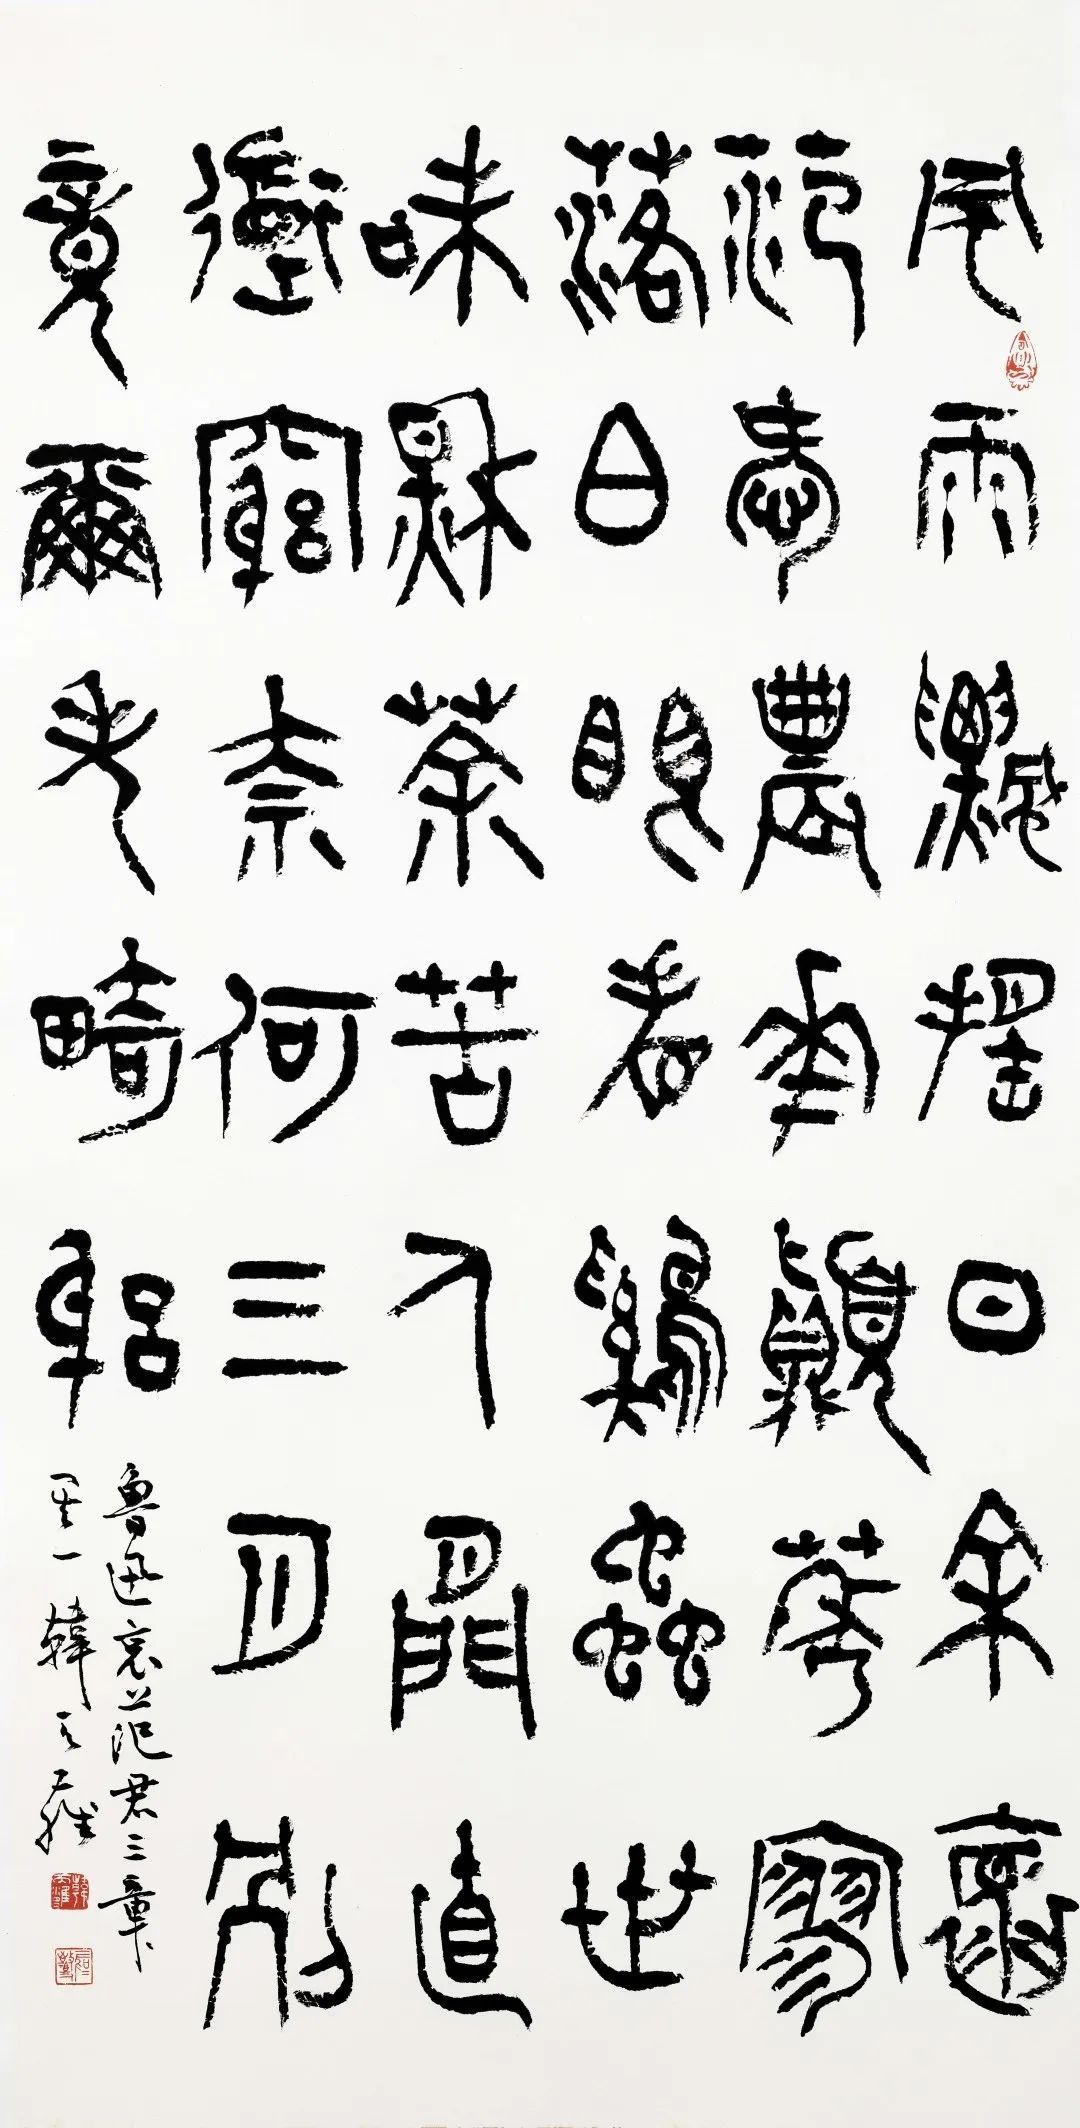 風雨飄搖日余懷
范愛農華顛萎寥
落白眼看雞蟲世
味秋荼苦人閒直
衜窮奈何三月別
竟爾失畸躳
魯迅哀范君三章
其一 韓天雍